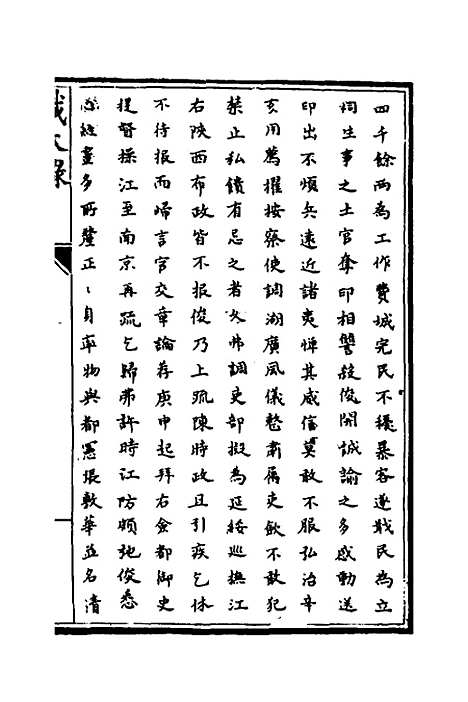 四千餘兩為工作費城完民不擾暴客遂戢民為立
祠生事之土官奪印相讐殺俊開誠諭之多感動送
印出不煩兵遠近諸夷憚其威信莫敢不服弘治辛
亥用薦擢按察使調湖廣風儀整肅屬吏歛不敢犯
禁止私饋有忌之者又弗調吏部擬為延綏巡撫江
右陝西布政皆不報俊乃上疏陳時政且引疾乞休
不待报而歸言官交章論荐庚申起拜右僉都御史
提督操江至南京再疏乞歸弗許時江防頗弛俊悉
心經畫多所釐正自率物與都憲張敷華並名清